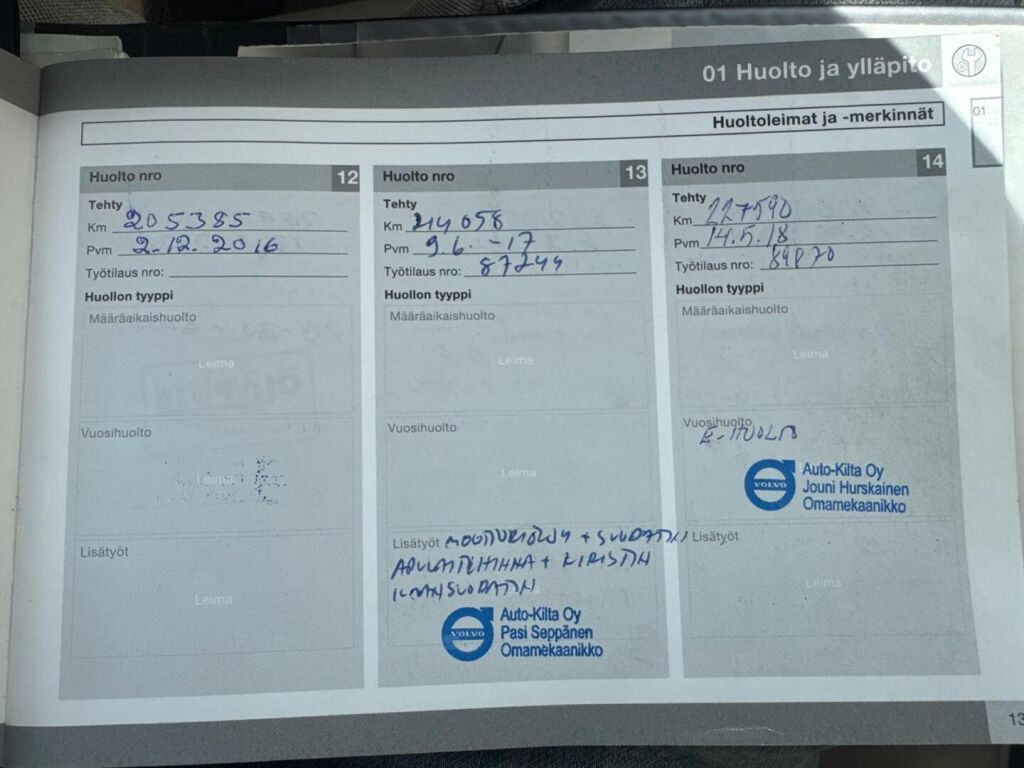 01 Huolto ja ylläpito
01
Huoltoleimat ja -merkinnät
Huolto nro 12
Tehty
Km 205385
Pvm 2.12.2016
Työtilaus nro:
Huollon tyyppi
Määräaikaishuolto
Leima
Vuosihuolto
Leima
Lisätyöt
Leima
Huolto nro 13
Tehty
Km 214058
Pvm 9.6.-17
Työtilaus nro: 87244
Huollon tyyppi
Määräaikaishuolto
Leima
Vuosihuolto
Leima
Lisätyöt MOOTTORIÖLJY + SUODATIN
APULAITEHIHNA + KIRISTIN
ILMANSUODATIN
VOLVO
Auto-Kilta Oy
Pasi Seppänen
Omamekaanikko
Huolto nro 14
Tehty
Km 227590
Pvm 14.5.18
Työtilaus nro:
Huollon tyyppi
Määräaikaishuolto
Leima
Vuosihuolto
E-HUOLTO
VOLVO
Auto-Kilta Oy
Jouni Hurskainen
Omamekaanikko
Lisätyöt
Leima